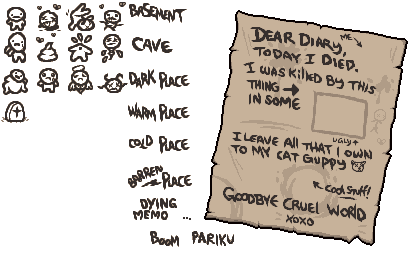 BASEMENT
CAVE
DARK PLACE
WARM PLACE
COLD PLACE
BARREN PLACE
DYING
MEMO ...
BOOM PARIKU
ME
DEAR DIARY,
TODAY I DIED.
I WAS KILLED BY THIS
THING
IN SOME
UGLY
I LEAVE ALL THAT I OWN
TO MY CAT GUPPY
COOL STUFF!
GOODBYE CRUEL WORLD
XOXO